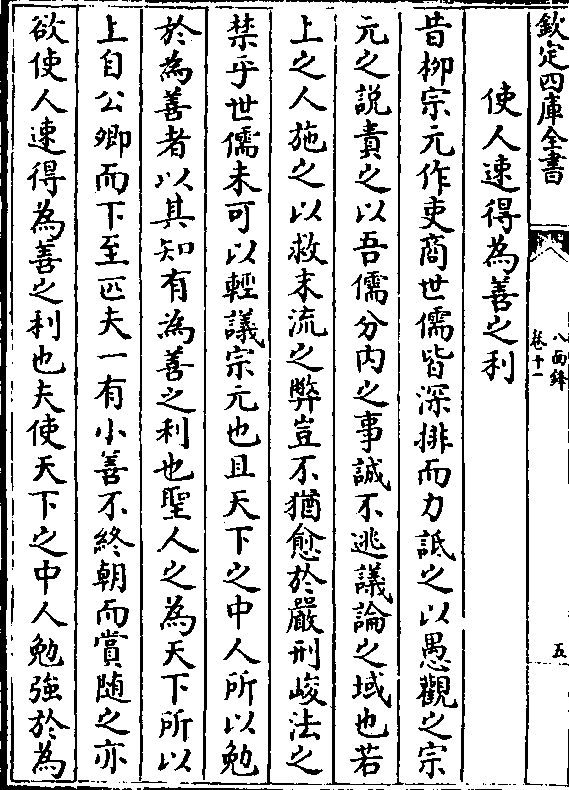 欽定四庫全書
八面鋒
卷十一
五
使人速得為善之利
昔柳宗元作吏商世儒皆深排而力詆之以愚觀之宗
元之説責之以吾儒分内之事誠不逃議論之域也若
上之人施之以救末流之弊豈不猶愈於嚴刑峻法之
禁乎世儒未可以輕議宗元也且天下之中人所以勉
於為善者以其知有為善之利也聖人之為天下所以
上自公卿而下至匹夫一有小善不終朝而賞随之亦
欲使人速得為善之利也夫使天下之中人勉強於為